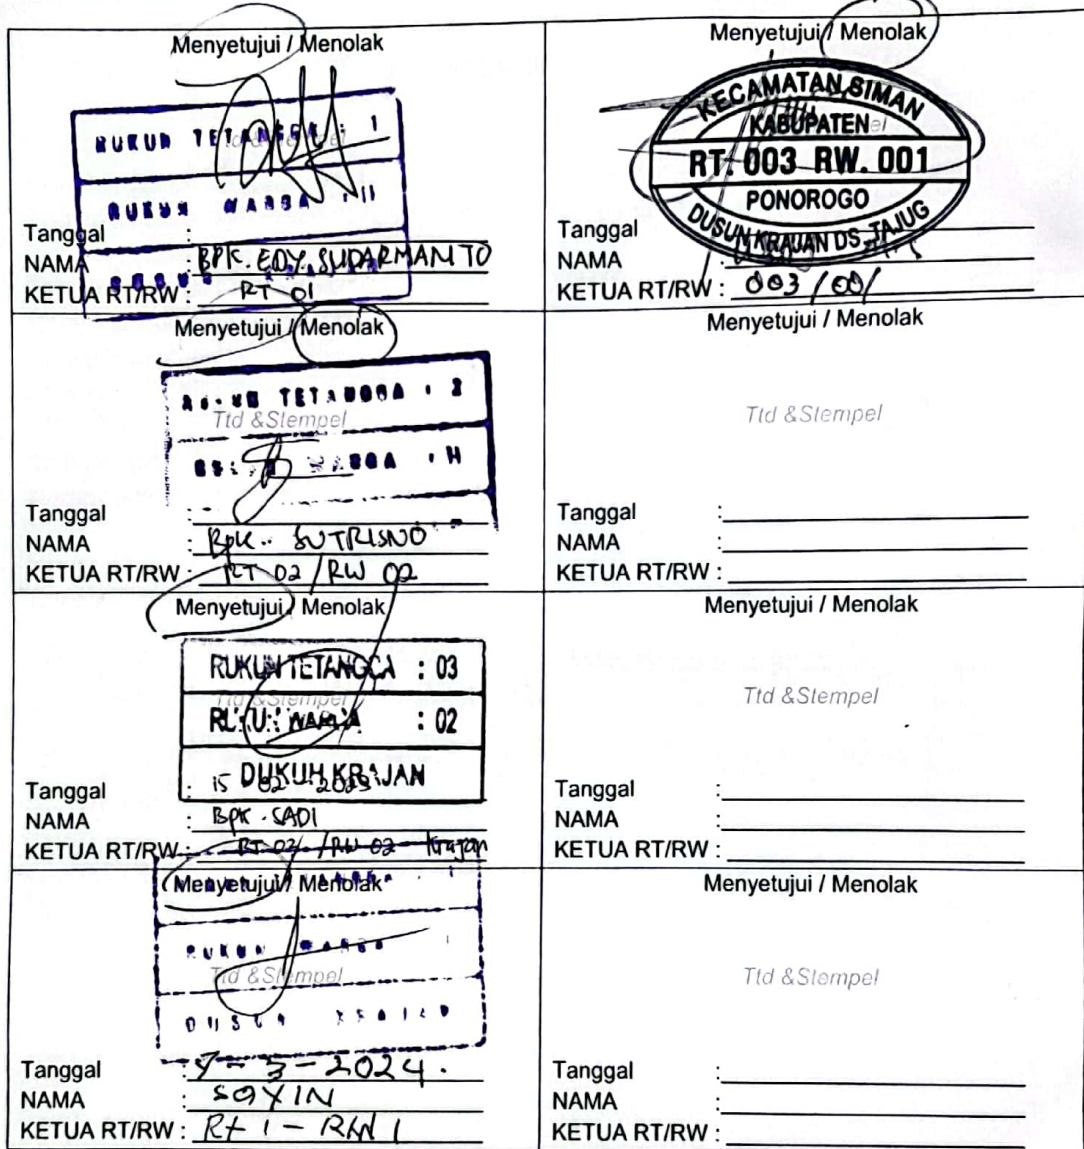 Menyetujui / Menolak
RUKUN TETANGGA : I
Ttd & Stempel
RUKUN WARGA : II
Tanggal :
NAMA : BPK. EDY. SUDARMANTO
KETUA RT/RW : RT 01
Menyetujui / Menolak
KECAMATAN SIMAN
KABUPATEN
RT. 003 RW. 001
PONOROGO
DUSUN KRAJAN DS. TAJUG
Tanggal :
NAMA :
KETUA RT/RW : 003 / 001
Menyetujui / Menolak
TETANGGA : 2
Ttd &Stempel
WARGA : II
Tanggal :
NAMA : Bpk. SUTRISNO
KETUA RT/RW : RT 02 / RW 02
Menyetujui / Menolak
Ttd &Stempel
Tanggal :
NAMA :
KETUA RT/RW :
Menyetujui / Menolak
RUKUN TETANGGA : 03
Ttd &Stempel
RUKUN WARGA : 02
DUKUH KRAJAN
Tanggal : 15 02 - 2023
NAMA : Bpk. SADI
KETUA RT/RW : RT 03 / RW 02 Krajan
Menyetujui / Menolak
Ttd &Stempel
Tanggal :
NAMA :
KETUA RT/RW :
Menyetujui / Menolak
RUKUN WARGA
Ttd &Stempel
DUSUN KRAJAN
Tanggal : 7 - 3 - 2024.
NAMA : SAYIN
KETUA RT/RW : Rt 1 - RW 1
Menyetujui / Menolak
Ttd &Stempel
Tanggal :
NAMA :
KETUA RT/RW :